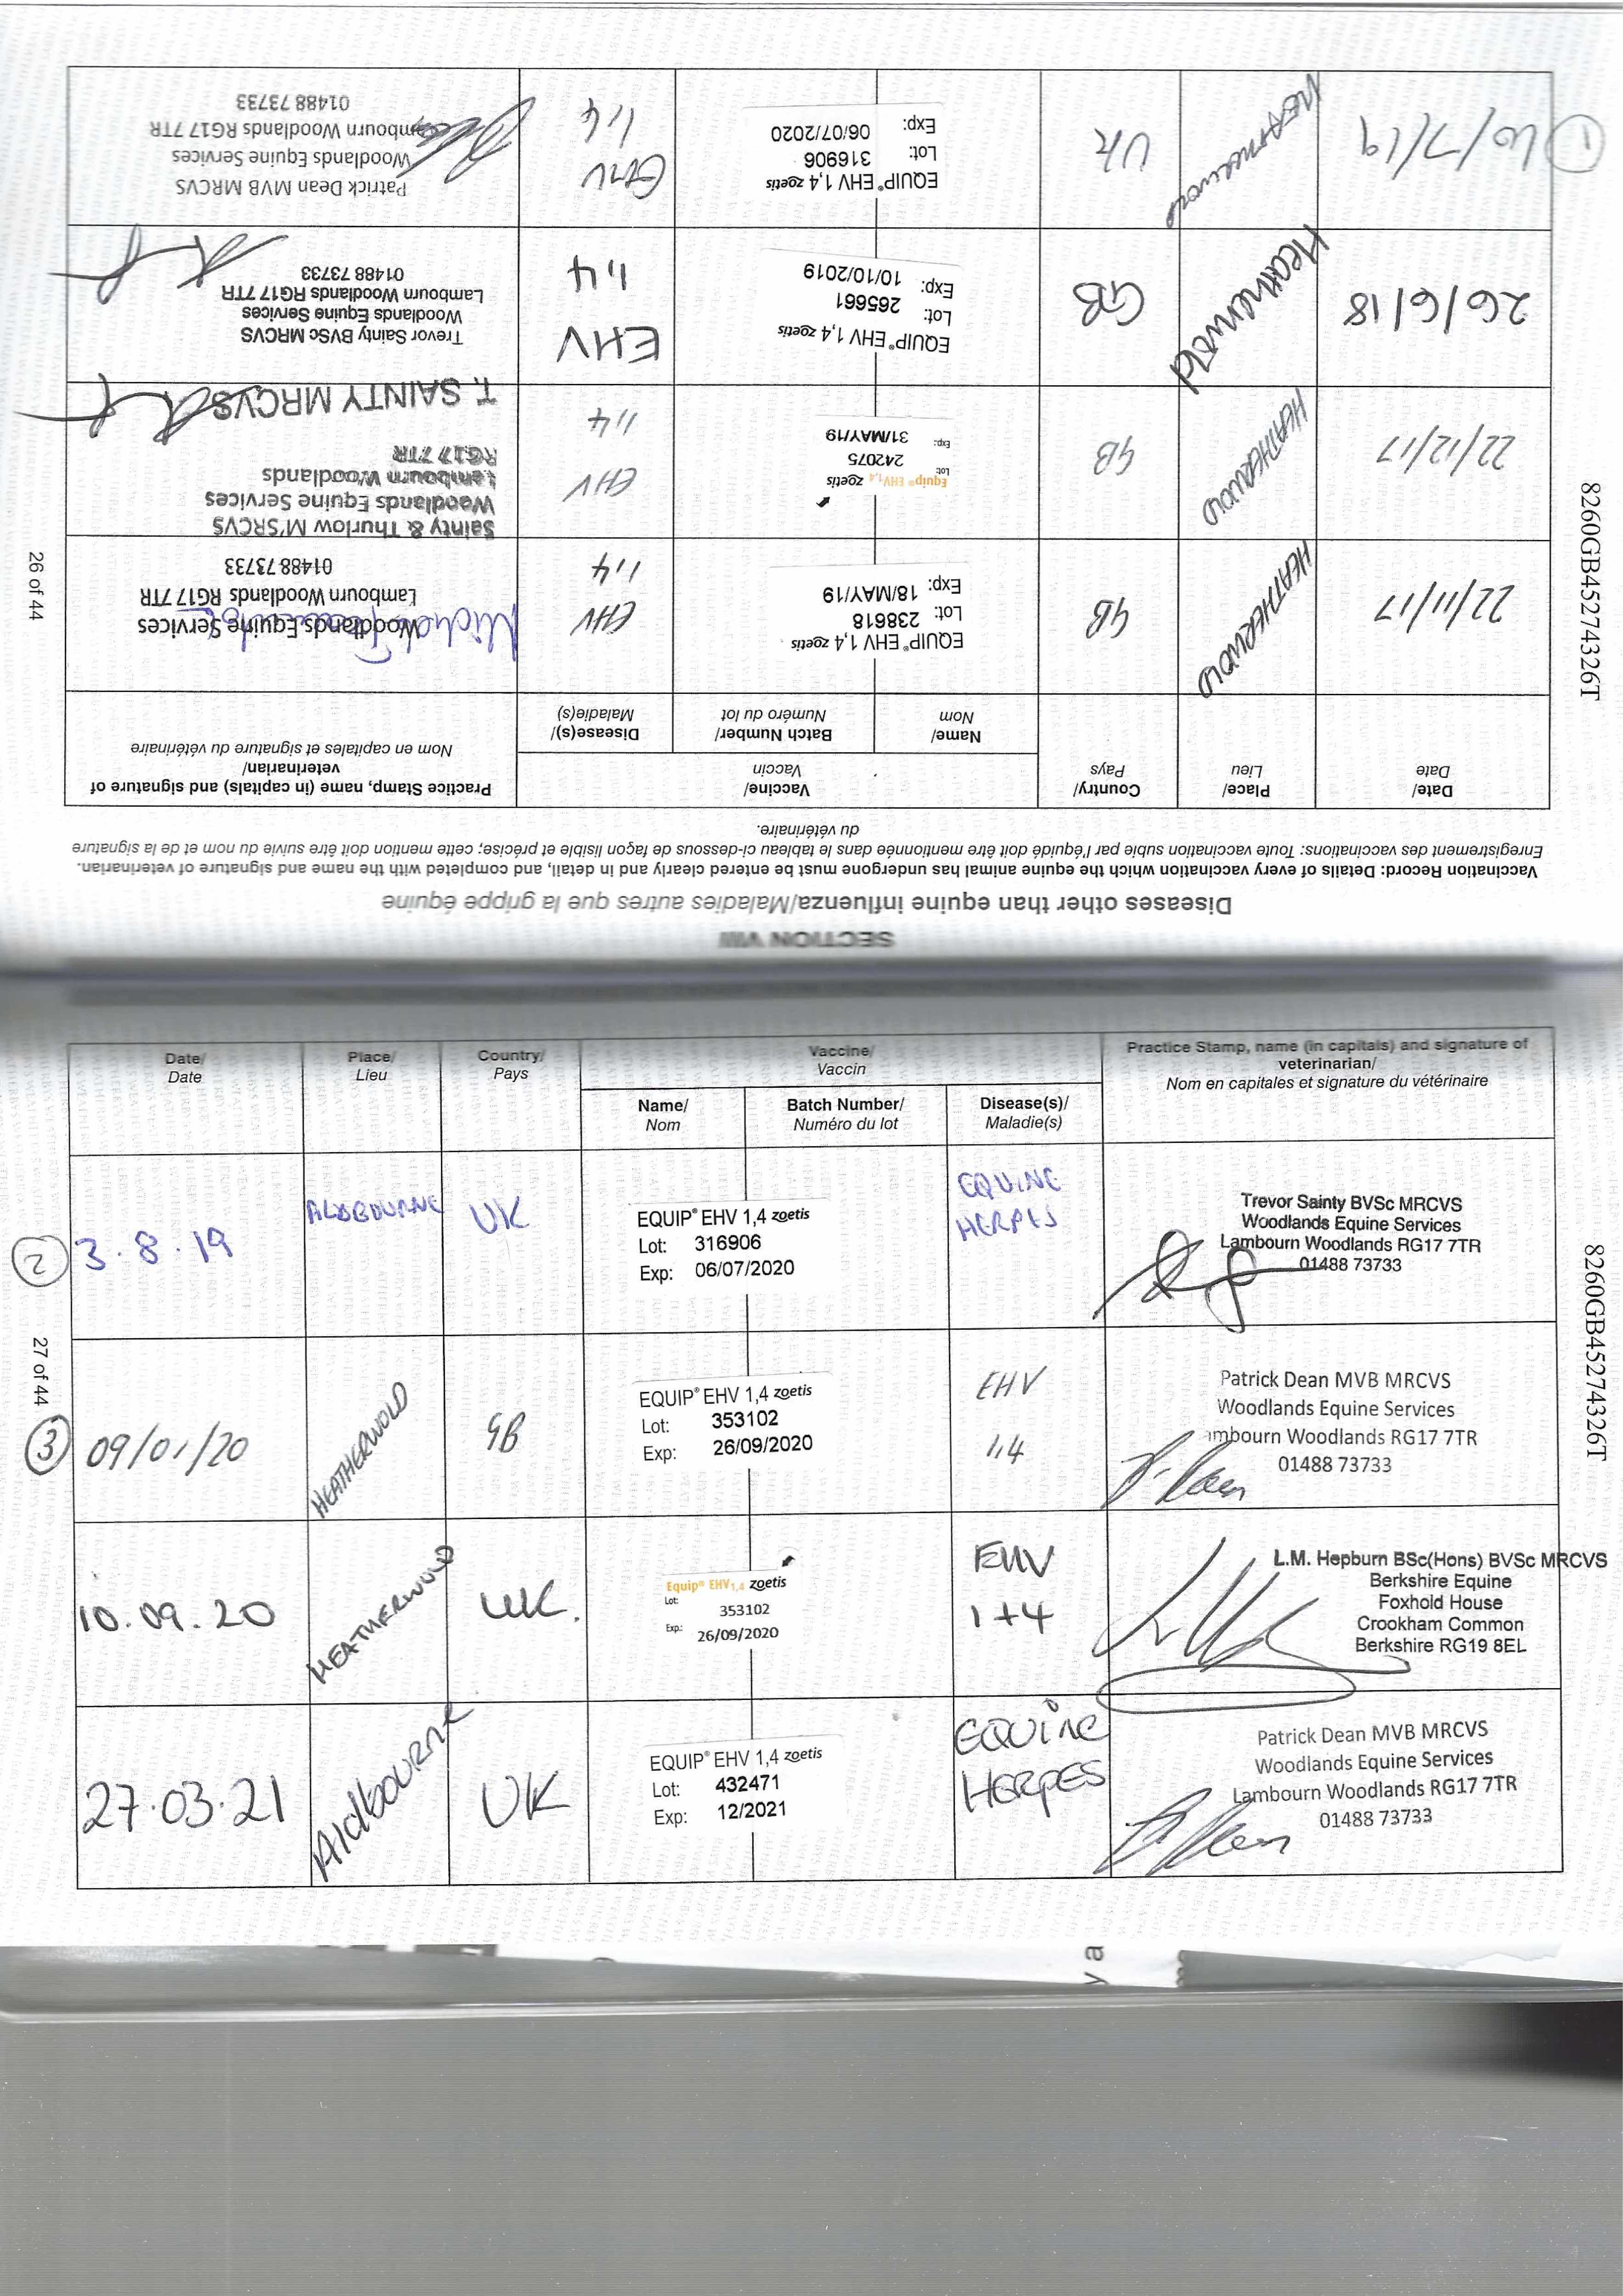 SECTION VIII
Diseases other than equine influenza/Maladies autres que la grippe équine
Vaccination Record: Details of every vaccination which the equine animal has undergone must be entered clearly and in detail, and completed with the name and signature of veterinarian.
Enregistrement des vaccinations: Toute vaccination subie par l'équidé doit être mentionnée dans le tableau ci-dessous de façon lisible et précise; cette mention doit être suivie du nom et de la signature
du vétérinaire.
Date/
Date
Place/
Lieu
Country/
Pays
Vaccine/
Vaccin
Name/
Nom
Batch Number/
Numéro du lot
Disease(s)/
Maladie(s)
Practice Stamp, name (in capitals) and signature of
veterinarian/
Nom en capitales et signature du vétérinaire
22/11/17
HEATHERWOLD
GB
EQUIP® EHV 1,4 zoetis
Lot: 238618
Exp: 18/MAY/19
EHV
1,4
Woodlands Equine Services
Lambourn Woodlands RG17 7TR
01488 73733
22/12/17
HEATHERWOLD
GB
Equip® EHV1,4 zoetis
Lot: 242075
Exp: 31/MAY/19
EHV
1,4
Sainty & Thurlow M'SRCVS
Woodlands Equine Services
Lambourn Woodlands
RG17 7TR
T. SAINTY MRCVS
26/6/18
Heatherwold
GB
EQUIP® EHV 1,4 zoetis
Lot: 265661
Exp: 10/10/2019
EHV
1,4
Trevor Sainty BVSc MRCVS
Woodlands Equine Services
Lambourn Woodlands RG17 7TR
01488 73733
1
/7/19
UK
EQUIP® EHV 1,4 zoetis
Lot: 316906
Exp: 06/07/2020
EHV
1,4
Patrick Dean MVB MRCVS
Woodlands Equine Services
Lambourn Woodlands RG17 7TR
01488 73733
26 of 44
8260GB45274326T
Date/
Date
Place/
Lieu
Country/
Pays
Vaccine/
Vaccin
Name/
Nom
Batch Number/
Numéro du lot
Disease(s)/
Maladie(s)
Practice Stamp, name (in capitals) and signature of
veterinarian/
Nom en capitales et signature du vétérinaire
2
3.8.19
ALDBOURNE
UK
EQUIP® EHV 1,4 zoetis
Lot: 316906
Exp: 06/07/2020
EQUINE
HERPES
Trevor Sainty BVSc MRCVS
Woodlands Equine Services
Lambourn Woodlands RG17 7TR
01488 73733
3
09/01/20
HEATHERWOLD
GB
EQUIP® EHV 1,4 zoetis
Lot: 353102
Exp: 26/09/2020
EHV
1,4
Patrick Dean MVB MRCVS
Woodlands Equine Services
ambourn Woodlands RG17 7TR
01488 73733
P. Dean
10.09.20
HEATHERWOLD
UK.
Equip® EHV1,4 zoetis
Lot: 353102
Exp.: 26/09/2020
EHV
1+4
L.M. Hepburn BSc(Hons) BVSc MRCVS
Berkshire Equine
Foxhold House
Crookham Common
Berkshire RG19 8EL
27.03.21
Aldbourne
UK
EQUIP® EHV 1,4 zoetis
Lot: 432471
Exp: 12/2021
EQUINE
HERPES
Patrick Dean MVB MRCVS
Woodlands Equine Services
Lambourn Woodlands RG17 7TR
01488 73733
P. Dean
27 of 44
8260GB45274326T
y a